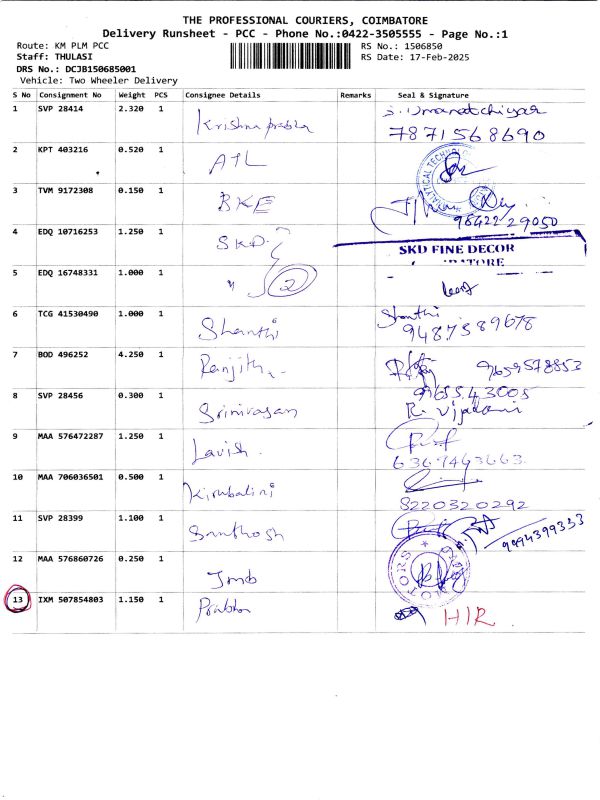 THE PROFESSIONAL COURIERS, COIMBATORE
Delivery Runsheet - PCC - Phone No.:0422-3505555 - Page No.:1
Route: KM PLM PCC
RS No.: 1506850
Staff: THULASI
RS Date: 17-Feb-2025
DRS No.: DCJB150685001
Vehicle: Two Wheeler Delivery
S No Consignment No Weight PCS Consignee Details Remarks Seal & Signature
1 SVP 28414 2.320 1 Krishna prabha
7871568690
2 KPT 403216 0.520 1 ATL
3 TVM 9172308 0.150 1 BKE
96422 29050
4 EDQ 10716253 1.250 1 SKD
SKD FINE DECOR
5 EDQ 16748331 1.000 1 " 2
6 TCG 41530490 1.000 1 Shanthi Shanthi
9487589678
7 BOD 496252 4.250 1 Ranjitha 9659578853
8 SVP 28456 0.300 1 Srinivasan 9655543005
9 MAA 576472287 1.250 1 Lavish.
6369463663
10 MAA 706036501 0.500 1 Kirubalini
8220320292
11 SVP 28399 1.100 1 Santhosh 9994399333
12 MAA 576860726 0.250 1 Jmb MOTORS
13 IXM 507854803 1.150 1 Prabhu HIR